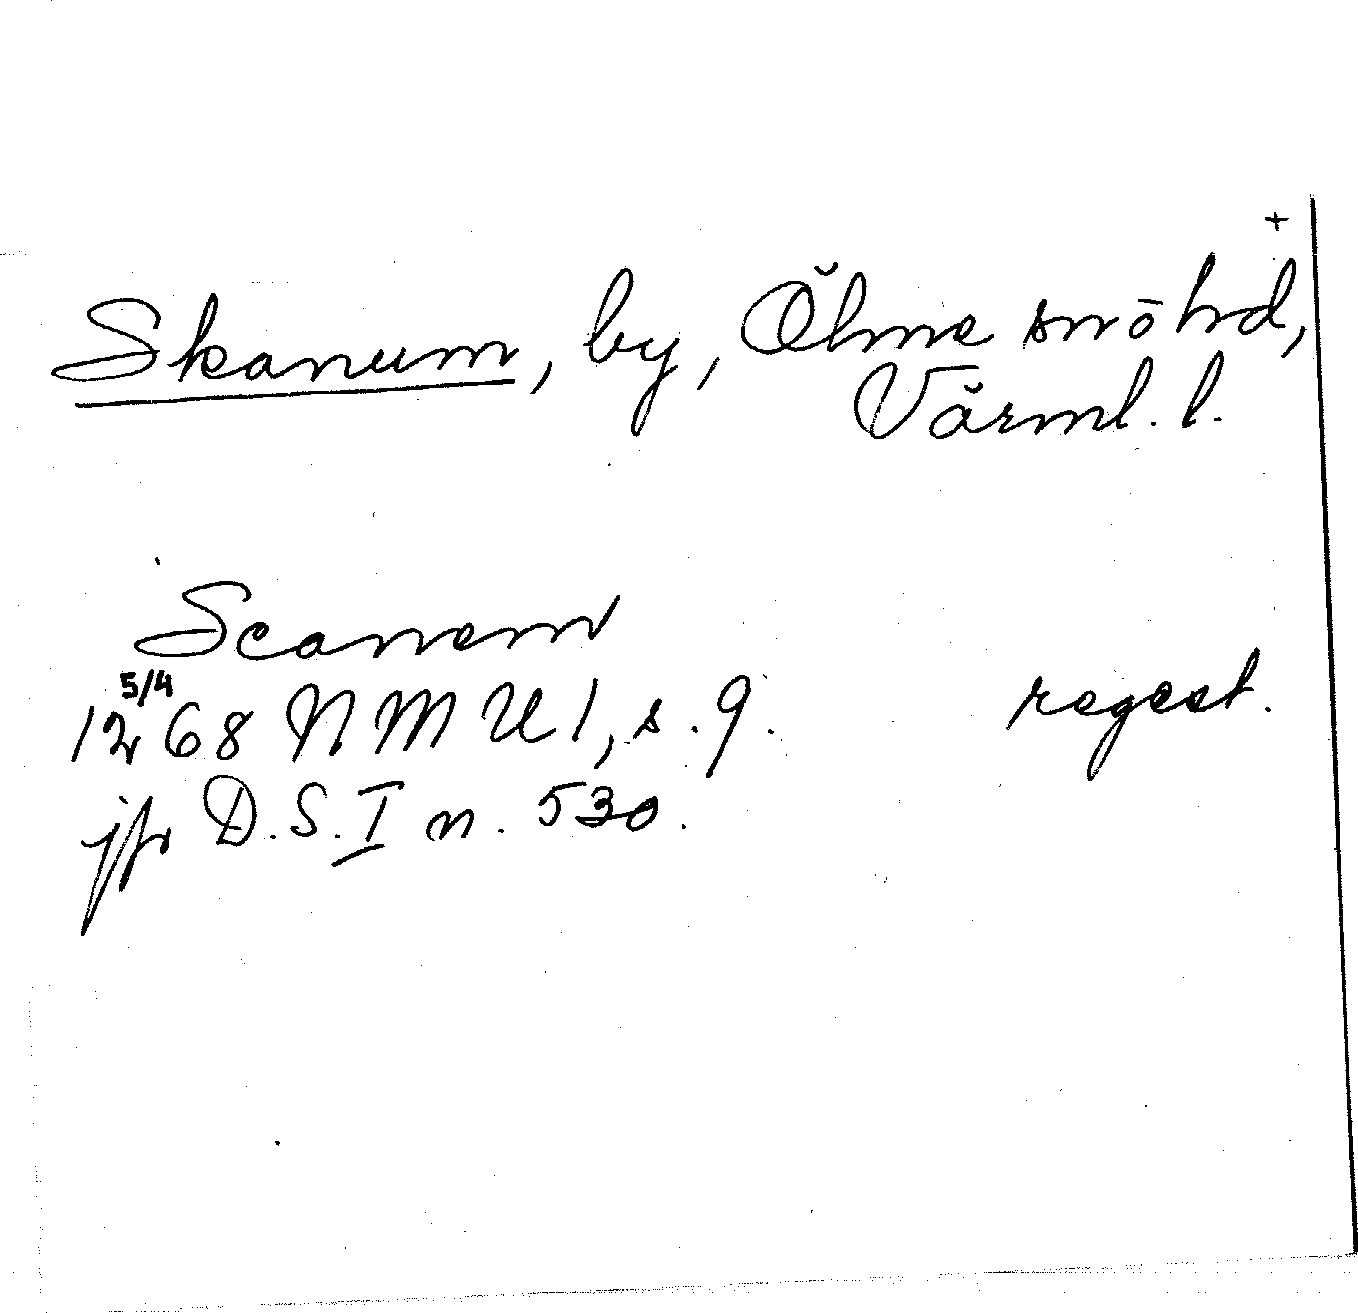 +
Skanum, by, Ölme sn o hd,
Värml. l.
Scanem
5/4
1268 NMU 1, s. 9. regest.
jfr D.S. I n. 530.